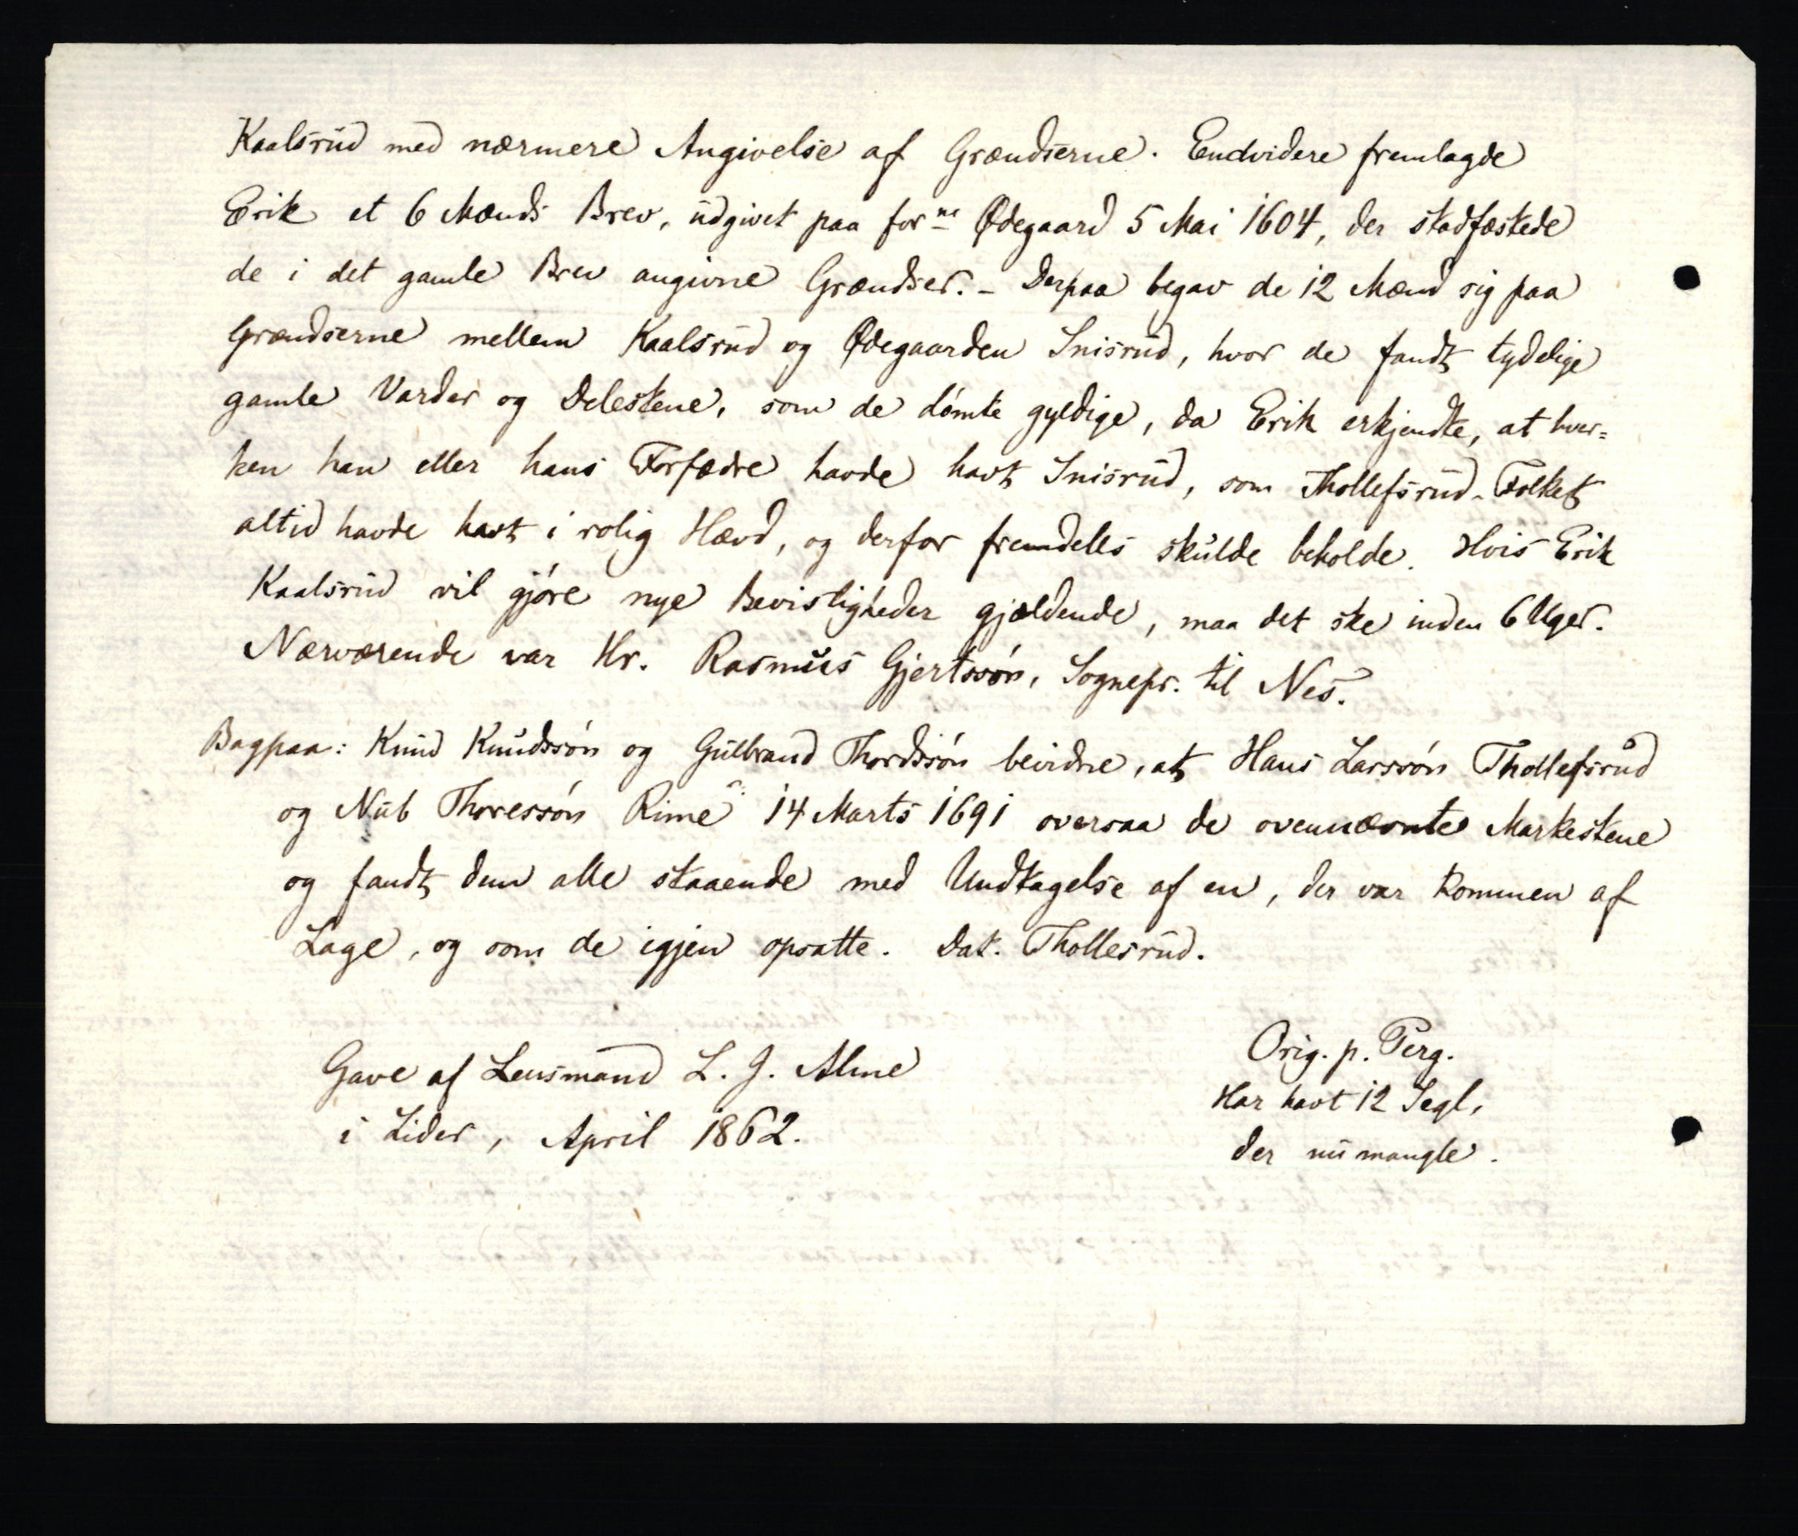 Kaalsrud med nærmere Angivelse af Grændserne. Endvidere fremlagde
Erik et 6 Mænds Brev, udgivet paa for ne Ødegaard 5 Mai 1604, der stadfæstede
de i det gamle Brev angivne Grændser. - Derpaa begav de 12 Mænd sig paa
Grændserne mellem Kaalsrud og Ødegaarden Snisrud, hvor de fandt tydelige
gamle Varder og Delestene, som de dømte gyldige, da Erik erkjendte, at hver=
ken han eller hans Forfædre havde havt Snisrud, som Thollefsrud-Folket
altid havde havt i rolig Hævd, og derfor fremdeles skulde beholde. Hvis Erik
Kaalsrud vil gjøre nye Bevisligheder gjældende, maa det ske inden 6 Uger.
Nærværende var Hr. Rasmus Gjertssøn, Sognepr. til Nes.
Bagpaa: Knud Knudssøn og Gulbrand Thordssøn bevidne, at Hans Larssøn Thollefsrud
og Nub Thoressøn Rime 14 Marts 1691 oversaa de ovennævnte Markestene
og fandt dem alle staaende med Undtagelse af en, der var kommen af
Lage, og som de igjen opsatte. Dat. Thollesrud.
Gave af Lensmand L. J. Alme
i Lider, April 1862.
Orig. p. Perg.
Har havt 12 Segl,
der nu mangle.